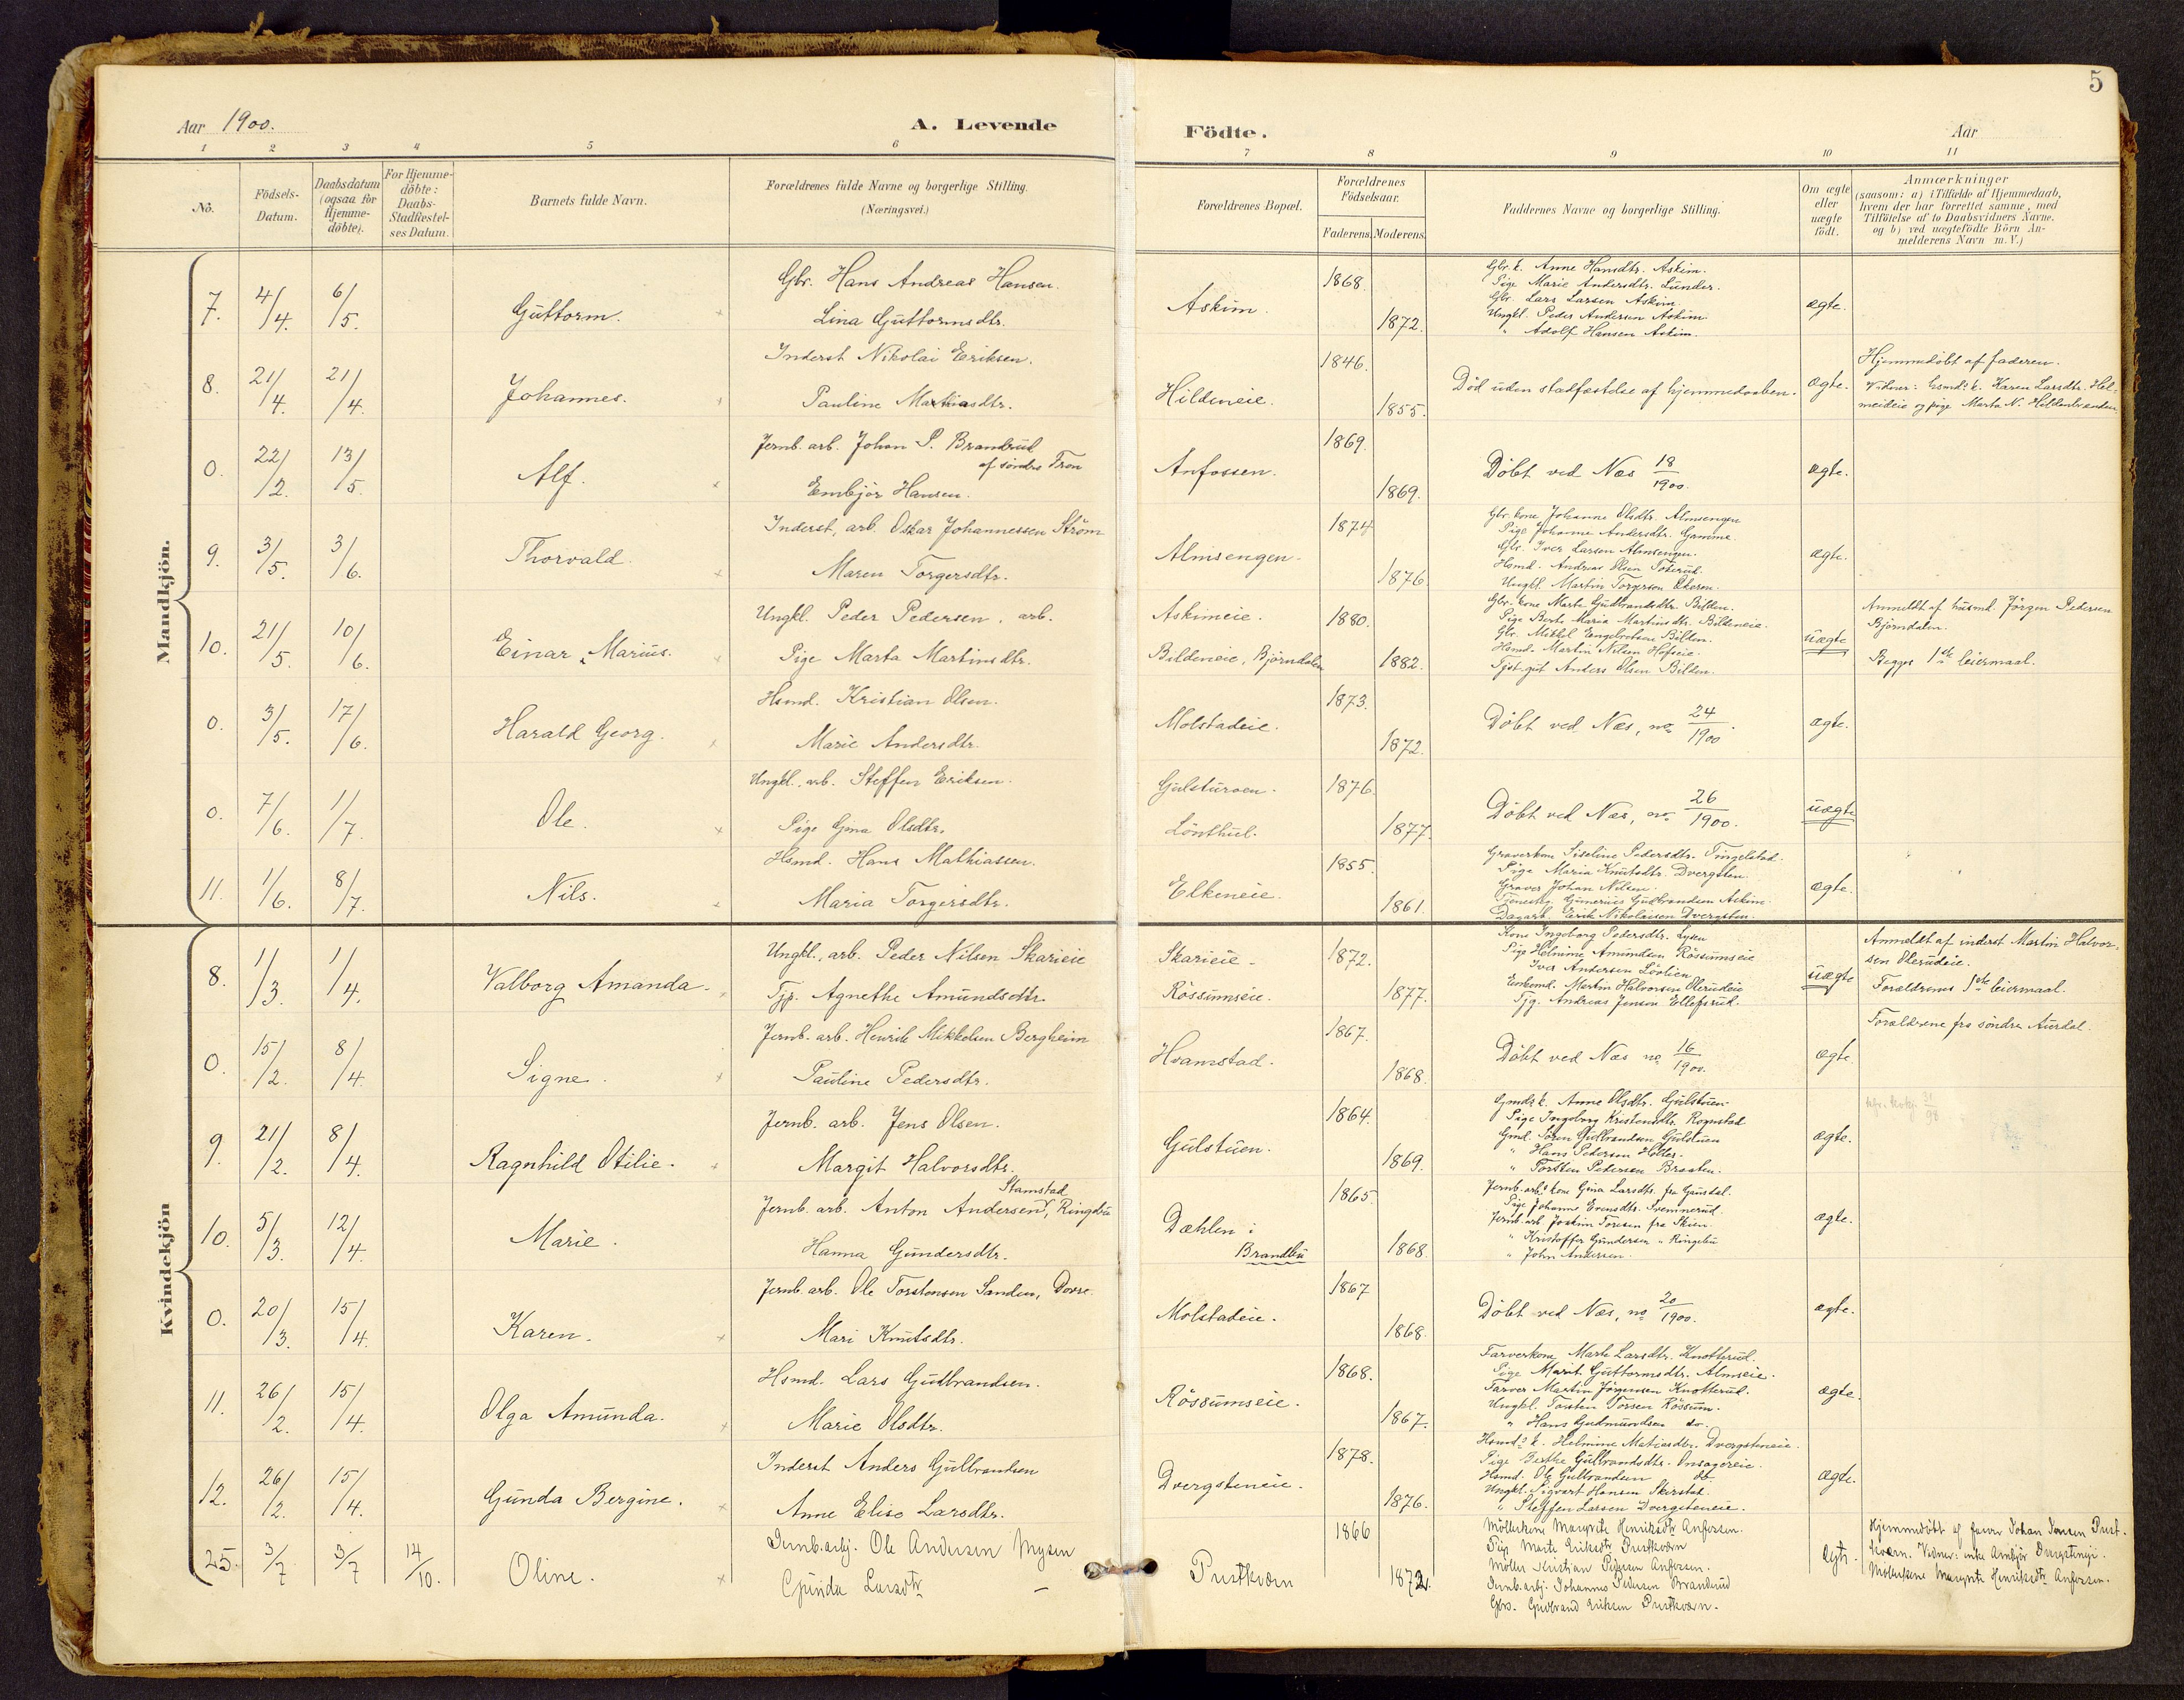 5
Aar 1900.
A. Levende
Födte.
Aar
1 2 3 4 5 6 7 8 9 10 11
No.
Födsels-
Datum.
Daabsdatum
(ogsaa for
Hjemme-
döbte).
For Hjemme-
döbte:
Daabs-
Stadfæstel-
ses Datum.
Barnets fulde Navn.
Forældrenes fulde Navne og borgerlige Stilling.
(Næringsvei.)
Forældrenes Bopæl.
Forældrenes
Födselsaar.
Faderens. Moderens.
Faddernes Navne og borgerlige Stilling.
Om ægte
eller
uægte
födt.
Anmærkninger
(saasom: a) i Tilfælde af Hjemmedaab,
hvem der har forrettet samme, med
Tilföielse af to Daabsvidners Navne.
og b) ved uægtefödte Börn An-
melderens Navn m. V.)
Mandkjön.
7. 4/4. 6/5. Guttorm.
Gbr. Hans Andreas Hansen.
Lina Guttormsdtr.
Askim.
1868.
1872.
Gbr. k. Anne Hansdtr. Askim.
Pige Marie Andersdtr. Lunder.
Gbr. Lars Larsen Askim.
Ungkl. Peder Andersen Askim.
" Adolf Hansen Askim.
ægte.
8. 21/4. 21/4. Johannes.
Inderst Nikolai Eriksen.
Pauline Mathiasdtr.
Hildeneie.
1846.
1855.
Död uden stadfæstelse af hjemmedaaben.
ægte.
Hjemmedöbt af faderen.
Vidner: hsmds. k. Karen Larsdtr. Hel-
meideie og pige Marta N. Hildenbrenden
0. 22/2. 13/5. Alf.
Jernb. arb. Johan P. Brandrud
af söndre Fron
Embjör Hansen.
Anfossen.
1869.
1869.
Döbt ved Næs 18/1900.
ægte.
9. 3/5. 3/6. Thorvald.
Inderst, arb. Oskar Johannessen Ström
Maren Torgersdtr.
Almsengen.
1874
1876
Gbr. kone Johanne Olsdtr. Almsengen
Pige Johanne Andersdtr. Gamme.
Gbr. Iver Larsen Almsengen.
Hsmd. Andreas Olsen
Ungkl. Martin Torgersen
ægte.
10. 21/5. 10/6. Einar Marius.
Ungkl. Peder Pedersen, arb.
Pige Marta Martinsdtr.
Askimeie.
Bildeneie, Björndalen
1880.
1882.
Gbr. kone Marte Gudbrandsdtr. Bilden.
Pige Berte Maria Martinsdtr. Bildeneie.
Gbr. Mikkel Engebretsen Bilden.
Hsmd. Martin Nilsen Hofseie.
Tjst.gut Anders Olsen Bilden.
uægte
Anmeldt af husmd. Jörgen Pedersen
Björndalen.
Begges 1ste leiermaal.
0. 3/5. 17/6. Harald Georg.
Hsmd. Kristian Olsen.
Marie Andersdtr.
Molstadeie.
1873.
1872.
Döbt ved Næs, no. 24/1900
ægte.
0. 7/6. 1/7. Ole.
Ungkl. arb. Steffen Eriksen.
Pige Gina Olsdtr.
Gulsturoen.
Lönthul.
1876.
1877.
Döbt ved Næs, no. 26/1900.
uægte
11. 1/6. 8/7. Nils.
Hsmd. Hans Mathiassen.
Maria Torgersdtr.
Elkeneie.
1855.
1861.
Graverkone Siseline Pedersdtr. Tingelstad.
Pige Maria Knutsdtr. Dvergsten.
Graver Johan Nilsen.
Gudbrandsen Askim.
Dagarb. Erik Nikolaisen Dvergsten.
ægte.
Kvindekjön
8. 1/3. 1/4. Valborg Amanda.
Ungkl., arb. Peder Nilsen Skarieie
Tjp. Agnethe Amundsdtr.
Skarieie.
Rössumseie.
1872.
1877.
Kone Ingeborg Pedersdtr. Lysen
Pige Helmine Amundsen Rössumseie
Iver Andersen Lövlien
Enkemd. Martin Halvorsen Olerudeie
Tjg. Andreas Jensen Ellefsrud.
uægte
Anmeldt af inderst Martin Halvor-
sen Olerudeie.
Forældrenes 1ste leiermaal.
0. 15/2. 8/4. Signe.
Jernb. arb. Henrik Mikkelsen Bergheim
Pauline Pedersdtr.
Hvamstad.
1867.
1868.
Döbt ved Næs no. 16/1900.
ægte.
Forældrene fra söndre Aurdal.
9. 21/2. 8/4. Ragnhild Otilie.
Jernb. arb. Jens Olsen.
Margit Halvorsdtr.
Gulstuen.
1864.
1869.
Gmds. k. Anne Olsdtr. Gulstuen
Pige Ingeborg Kristensdtr. Rognstad
Gmd. Sören Gulbrandsen Gulstuen
" Hans Pedersen Holter.
" Torsten Pedersen Braaten.
ægte.
31/98
10. 5/3. 12/4. Marie.
Stamstad
Jernb. arb. Anton Andersen, Ringebu
Hanna Gundersdtr.
Dæhlen i
Brandbu
1865.
1868.
Jernb. arb.s kone Gina Larsdtr. fra Gausdal.
Pige Johanne Evensdtr. Svennerud.
Jernb. arb. Joakim Toresen fra Skien.
" Kristoffer Gundersen " Ringebu
" John Andersen.
ægte.
0. 20/3. 15/4. Karen.
Jernb. arb. Ole Torstensen Sanden, Dovre.
Mari Knutsdtr.
Molstadeie.
1867
1868.
Döbt ved Næs, no. 20/1900.
ægte.
11. 26/2. 15/4. Olga Amunda.
Hsmd. Lars Gudbrandsen.
Marie Olsdtr.
Rössumseie.
1868.
1867.
Farverkone Marte Larsdtr. Knotterud.
Pige Marit Guttormsdtr. Almseie.
Farver Martin Jörgensen Knotterud.
Ungkl. Torsten Torsen Rössum.
" Hans Gudmundsen do.
ægte.
12. 26/2. 15/4. Gunda Bergine.
Inderst Anders Gulbrandsen
Anne Elise Larsdtr.
Dvergsteneie.
1878.
1876.
Hsmds. k. Helmine Matiasdtr. Dvergsteneie.
Pige Berthe Gulbrandsdtr. Onsagereie.
Hsmd. Ole Gulbrandsen do.
Ungkl. Sigvart Hansen Skirstad.
" Steffen Larsen Dvergsteneie.
ægte.
25. 3/7 3/7 14/10. Oline.
Jernb.arbj. Ole Andersen Mysen
Gunda Larsdtr
Pustkværn
1866
1872.
Möllerkone Margrete Henriksdtr Anfossen.
Pige Marte Eriksdtr Pustkværn
Möller Kristian Pedersen Anfossen.
Jernb. arbj. Johannes Pedersen Brandrud
Gbr. Gudbrand Eriksen Pustkværn.
ægte.
Hjemmedöbt af farver Johan Jensen Pust-
kværn. Vidner: enke Ambjör Dvergsteneie.
Möllerkone Margrete Henriksdtr Anfossen.